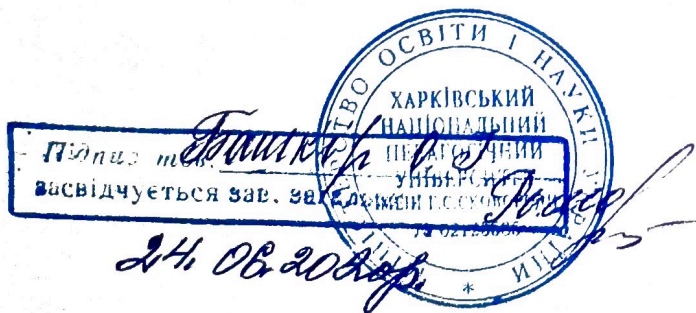 МІНІСТЕРСТВО ОСВІТИ І НАУКИ УКРАЇНИ *
ХАРКІВСЬКИЙ
НАЦІОНАЛЬНИЙ
ПЕДАГОГІЧНИЙ
УНІВЕРСИТЕТ
ІМЕНІ Г.С.СКОВОРОДИ
Підпис тов. Башкір О. І.
засвідчується зав.
24. 06. 2020р.